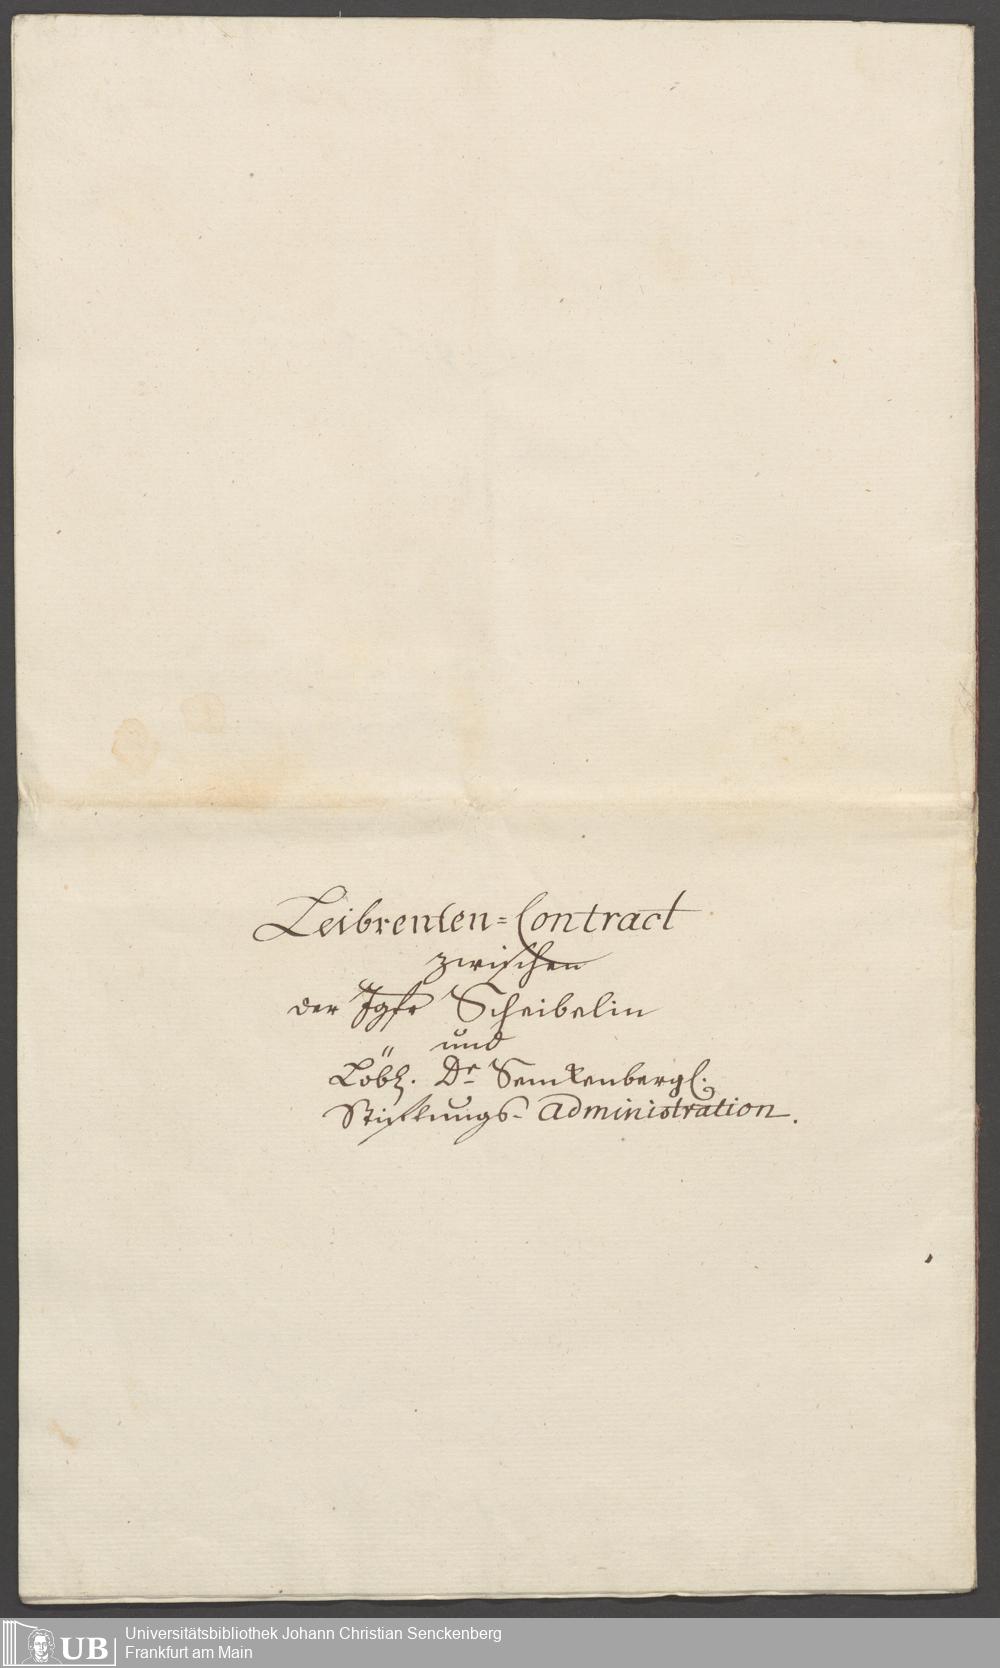 Leibrenten=Contract
zwischen
der Jgfr Scheibelin
und
Löbl. Dr Senckenbergl.
Stifftungs-Administration.
UB Universitätsbibliothek Johann Christian Senckenberg
Frankfurt am Main